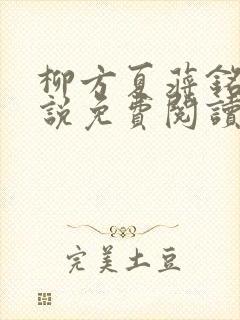 柳方夏蔣銘
説免費閱讀
完美土豆